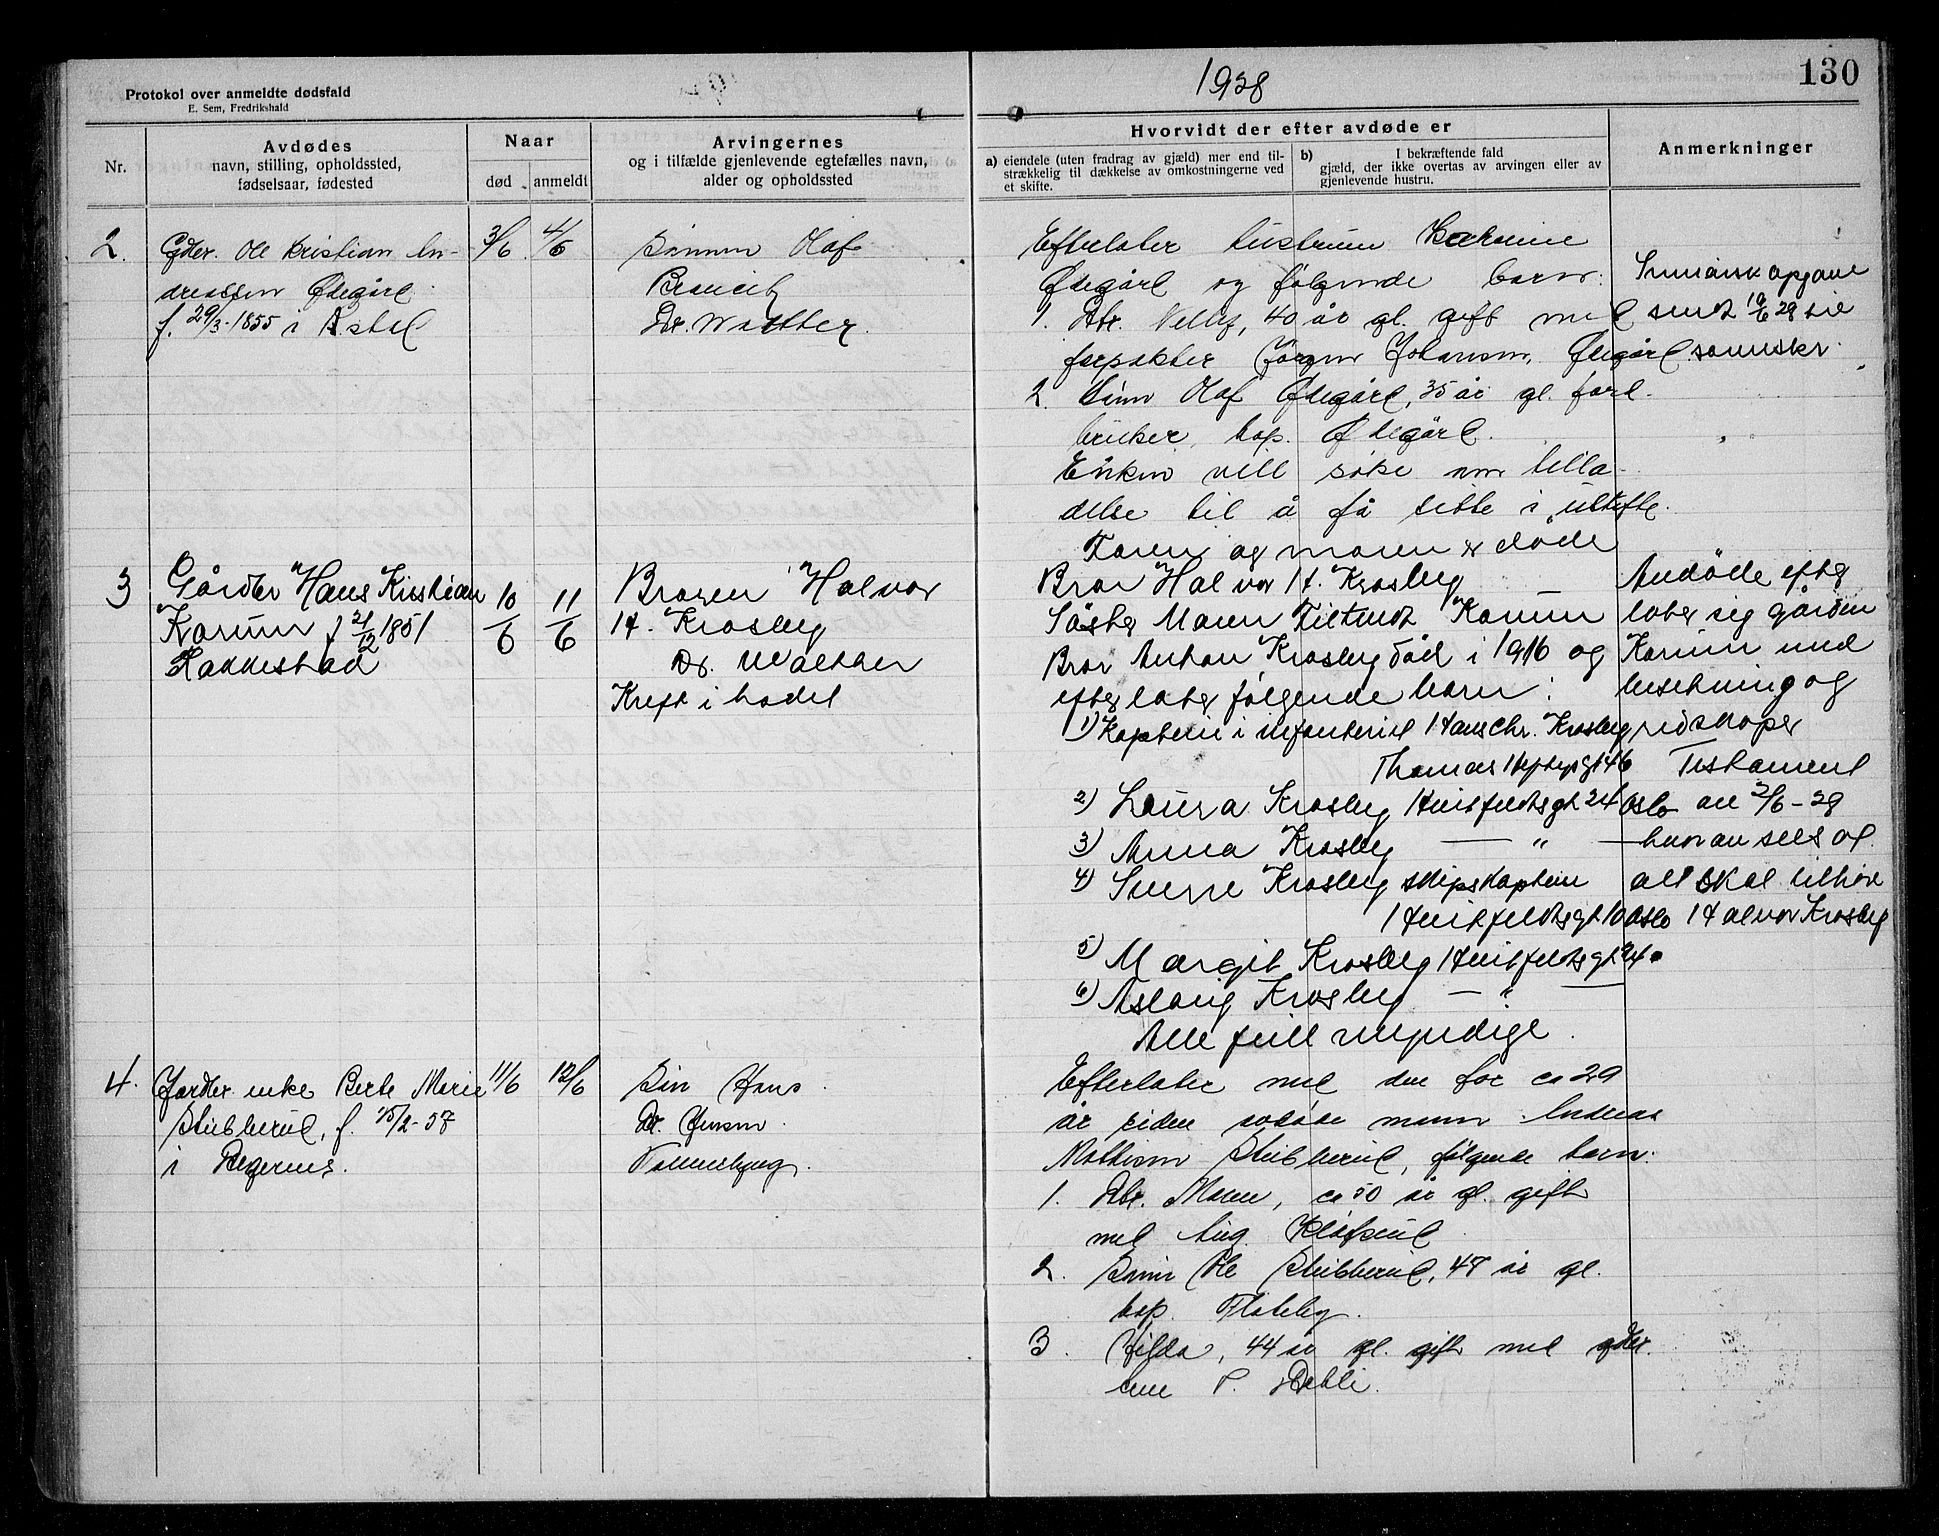 Protokol over anmeldte dødsfald
E. Sem, Fredrikshald
1928
130
Nr.
Avdødes
navn, stilling, opholdssted,
fødselsaar, fødested
Naar
død
anmeldt
Arvingernes
og i tilfælde gjenlevende egtefælles navn,
alder og opholdssted
Hvorvidt der efter avdøde er
a) eiendele (uten fradrag av gjæld) mer end til-
strækkelig til dækkelse av omkostningerne ved
et skifte.
b) I bekræftende fald
gjæld, der ikke overtas av arvingen eller av
gjenlevende hustru.
Anmerkninger
2. Gder. Ole Kristian An-
dreassen Ødegård
f. 29/3-1855 i
3/6 4/6
Sønnen Olaf
Dr. Walther
Efterlater hustruen
Ødegård og følgende barn:
1. Dtr. Nelly, 40 år gl. gift med
forpakter Jörgen Johansen, Ødegård
2. Sönn Olaf Ødegård, 35 år gl. jord-
bruker, bop. Ødegård.
Enken vill söke om tilla-
delse til å få sitte i uskifte.
Summarisk opgave
sendt 19/6 28 til
sorenskr.
3 Gårdbr Hans Kristian
Korum f 21/12 1851
Rakkestad
10/6 11/6
Broren Halvor
H. Krosby
Dr. Walther
Kreft i hodet
Faren og moren er døde
Bror Halvor H. Krosby
Söster Maren Korum
Bror Anton Krosby död i 1916 og
efterlater følgende barn:
1) Kaptein i infanteriet Hans Chr. Krosby
Thomas Heftyesgt 46
2) Laura Krosby Huitfeldtsgt 24 Oslo
3) Anna Krosby — " —
4) Sverre Krosby skipskaptein
Huitfeldtsgt 10 Oslo
5) Margit Krosby Huitfeldtsgt 24
6) Aslaug Krosby — " —
Alle fullmyndige.
Avdøde efter
later sig gården
Korum med
besetning og
redskaper
Testament
av 2/6-28
hvorav sees at
alt skal tilhöre
Halvor Krosby
4. Gårdbr. enke Berte Marie
Stubberud, f. 15/2-57
i Degernes.
11/6 12/6
Sön Hans
Dr. Jensen
Efterlater med den for ca 29
år siden avdøde mann Andreas
Mathisen Stubberud, følgende barn:
1. Dtr. Maren, ca 50 år gl. gift
med Aug.
2. Sönn Ole Stubberud, 47 år gl.
bop. Flateby.
3. Hilda, 44 år gl. gift med gdbr.